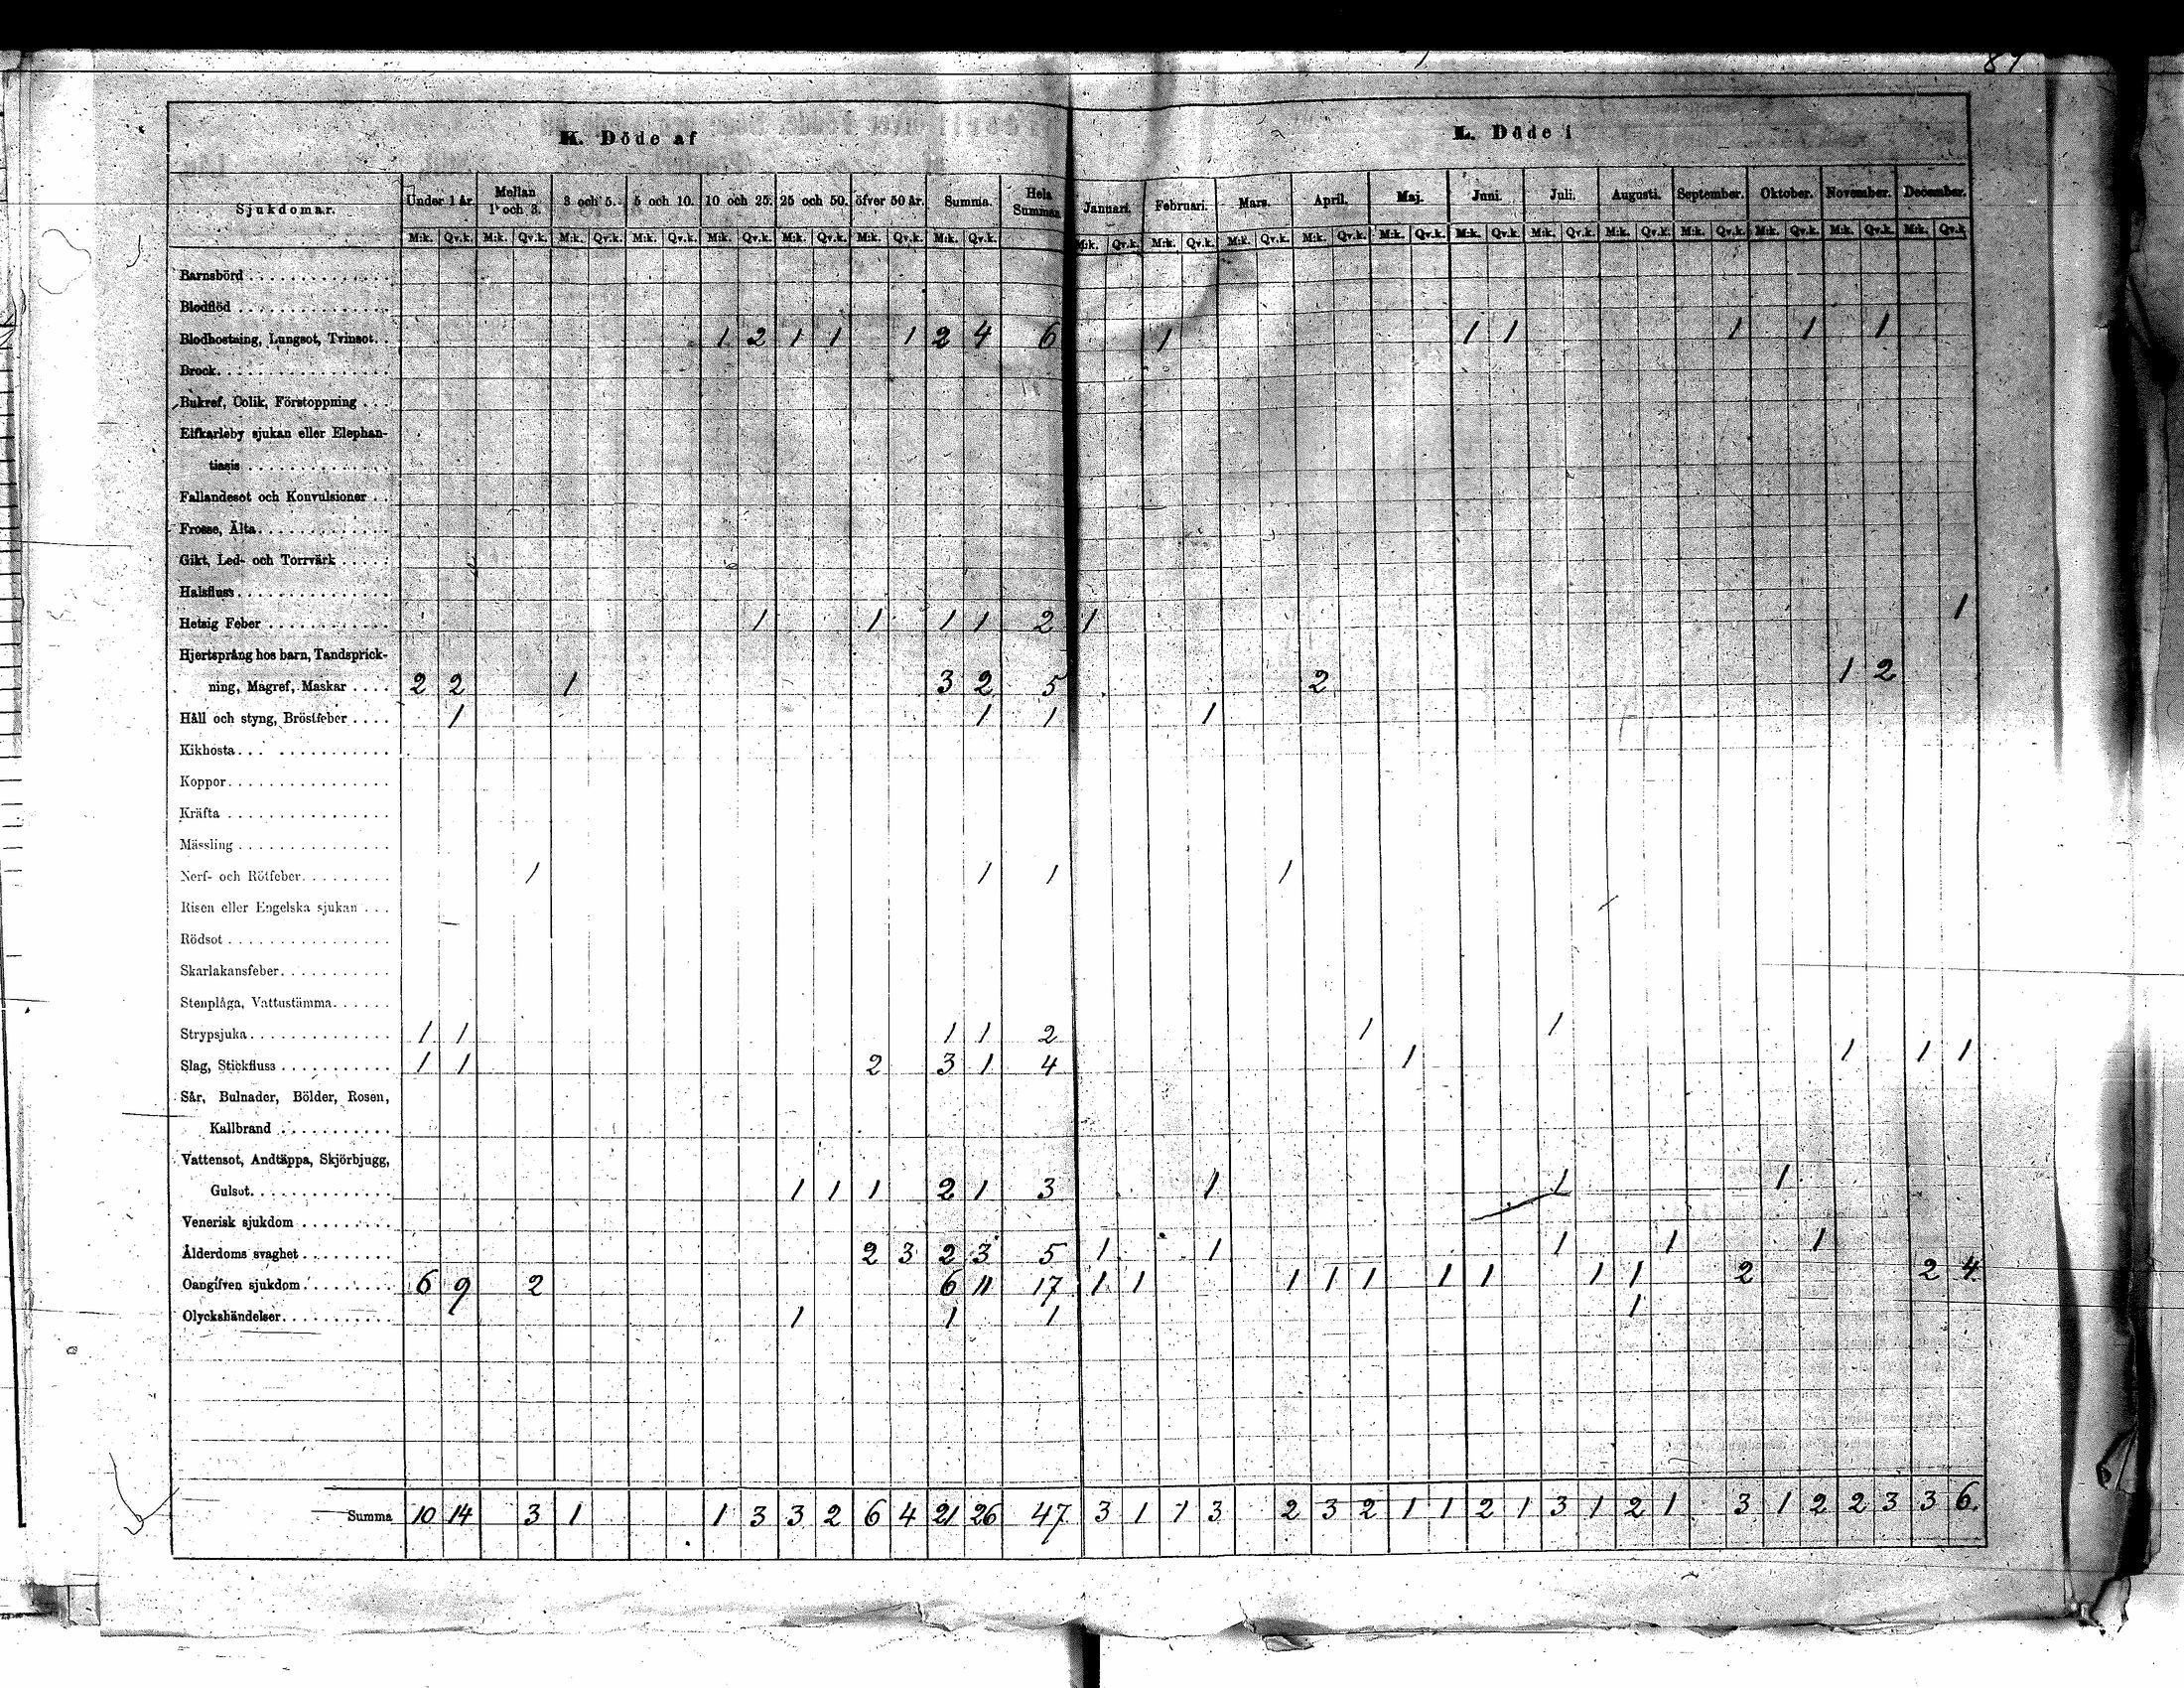 87
K. Döde af L. Döde i
Sjukdomar. Under 1 år. Mellan 1 och 3. 3 och 5. 5 och 10. 10 och 25. 25 och 50. öfver 50 år. Summa. Hela Summan Januari. Februari. Mars. April. Maj. Juni. Juli. Augusti. September. Oktober. November. December.
M:k. Qv.k. M:k. Qv.k. M:k. Qv.k. M:k. Qv.k. M:k. Qv.k. M:k. Qv.k. M:k. Qv.k. M:k. Qv.k. M:k. Qv.k. M:k. Qv.k. M:k. Qv.k. M:k. Qv.k. M:k. Qv.k. M:k. Qv.k. M:k. Qv.k. M:k. Qv.k. M:k. Qv.k. M:k. Qv.k. M:k. Qv.k. M:k. Qv.k.
Barnsbörd
Blodflöd
Blodhostning, Lungsot, Tvinsot. 1 2 1 1 1 2 4 6 1 1 1 1 1 1
Brock
Bukref, Colik, Förstoppning
Elfkarleby sjukan eller Elephan-
tiasis
Fallandesot och Konvulsioner
Frosse, Älta
Gikt, Led- och Torrvärk
Halsfluss
Hetsig Feber 1 1 1 1 2 1 1
Hjertsprång hos barn, Tandsprick-
ning, Magref, Maskar 2 2 1 3 2 5 2 1 2
Håll och styng, Bröstfeber 1 1 1 1
Kikhosta
Koppor
Kräfta
Mässling
Nerf- och Rötfeber 1 1 1 1
Risen eller Engelska sjukan
Rödsot
Skarlakansfeber
Stenplåga, Vattustämma
Strypsjuka 1 1 1 1 2 1 1
Slag, Stickfluss 1 1 2 3 1 4 1 1 1 1
Sår, Bulnader, Bölder, Rosen,
Kallbrand
Vattensot, Andtäppa, Skjörbjugg,
Gulsot 1 1 1 2 1 3 1 1 1
Venerisk sjukdom
Ålderdoms svaghet 2 3 2 3 5 1 1 1 1 1
Oangifven sjukdom 6 9 2 6 11 17 1 1 1 1 1 1 1 1 1 2 2 4
Olyckshändelser 1 1 1 1
Summa 10 14 3 1 1 3 3 2 6 4 21 26 47 3 1 1 3 2 3 2 1 1 2 1 3 1 2 1 3 1 2 2 3 3 6